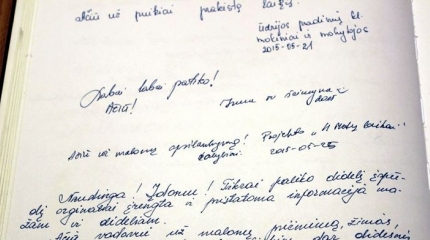 Ačiū už puikiai praleistą laiką.
Ūdrijos pradinių kl.
mokiniai ir mokytojos
2015-05-21
Labai labai patiko!
Ačiū!
ir šeimyna
2015
Ačiū už malonų apsilankymą! Projekto
dalyviai 2015-05-25
Nuostabu! Įdomu! Tikrai paliko didelį įspū-
dį orginaliai įrengta ir pristatoma informacija ma-
žam ir dideliam.
Ačiū vadovei už malonų priėmimą, žinias,
dar didesnių